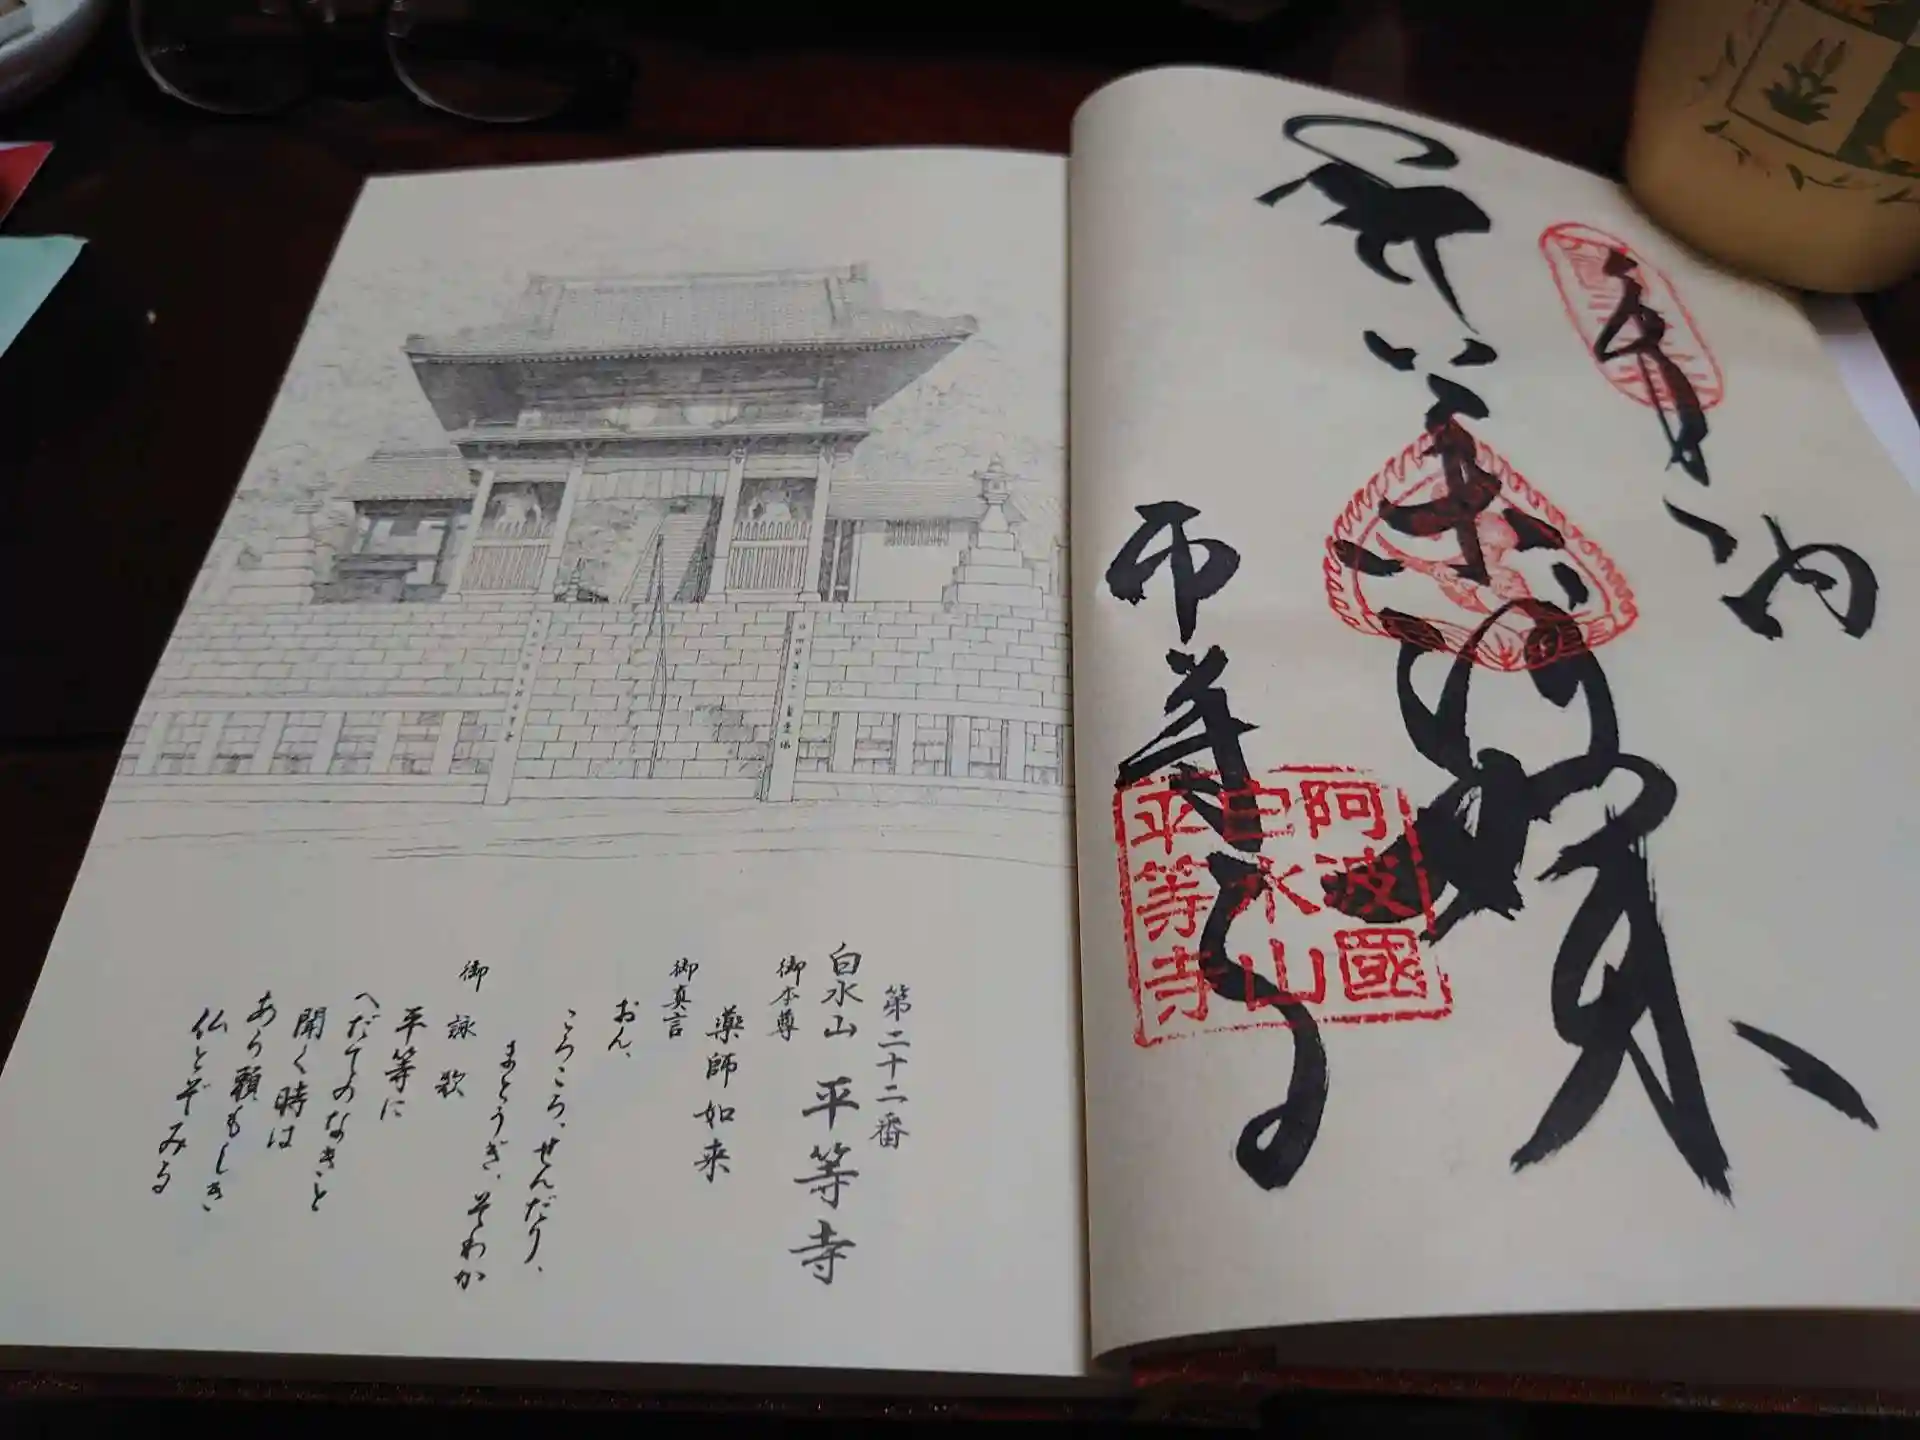 奉納
薬師如来
平等寺
阿波國
白水山
平等寺
第二十二番
白水山 平等寺
御本尊
薬師如来
御真言
おん、
ころころ、せんだり、
まとうぎ、そわか
御詠歌
平等に
へだてのなきと
聞く時は
あら頼もしき
仏とぞみる